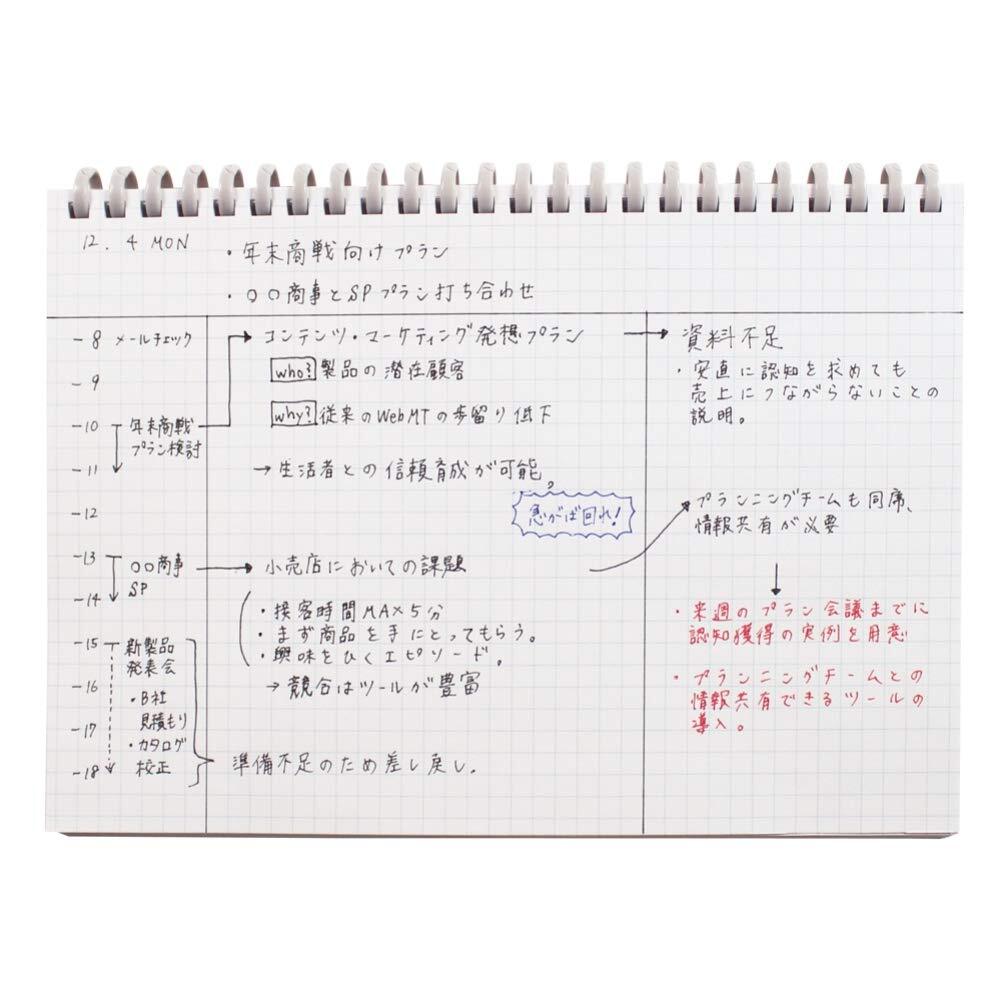 12. 4 MON
・年末商戦向けプラン
・〇〇商事とSPプラン打ち合わせ
-8 メールチェック
-9
-10 年末商戦
プラン検討
-11
-12
-13 〇〇商事
SP
-14
-15 新製品
発表会
-16 ・B社
見積もり
-17 ・カタログ
-18 校正
コンテンツ・マーケティング発想プラン
who? 製品の潜在顧客
why? 従来のWebMTの歩留り低下
→生活者との信頼育成が可能
急がば回れ!
小売店においての課題
・接客時間MAX5分
・まず商品を手にとってもらう。
・興味をひくエピソード。
→競合はツールが豊富
準備不足のため差し戻し.
→資料不足
・安直に認知を求めても
売上につながらないことの
説明。
プランニングチームも同席、
情報共有が必要
・来週のプラン会議までに
認知獲得の実例を用意
・プランニングチームとの
情報共有できるツールの
導入。